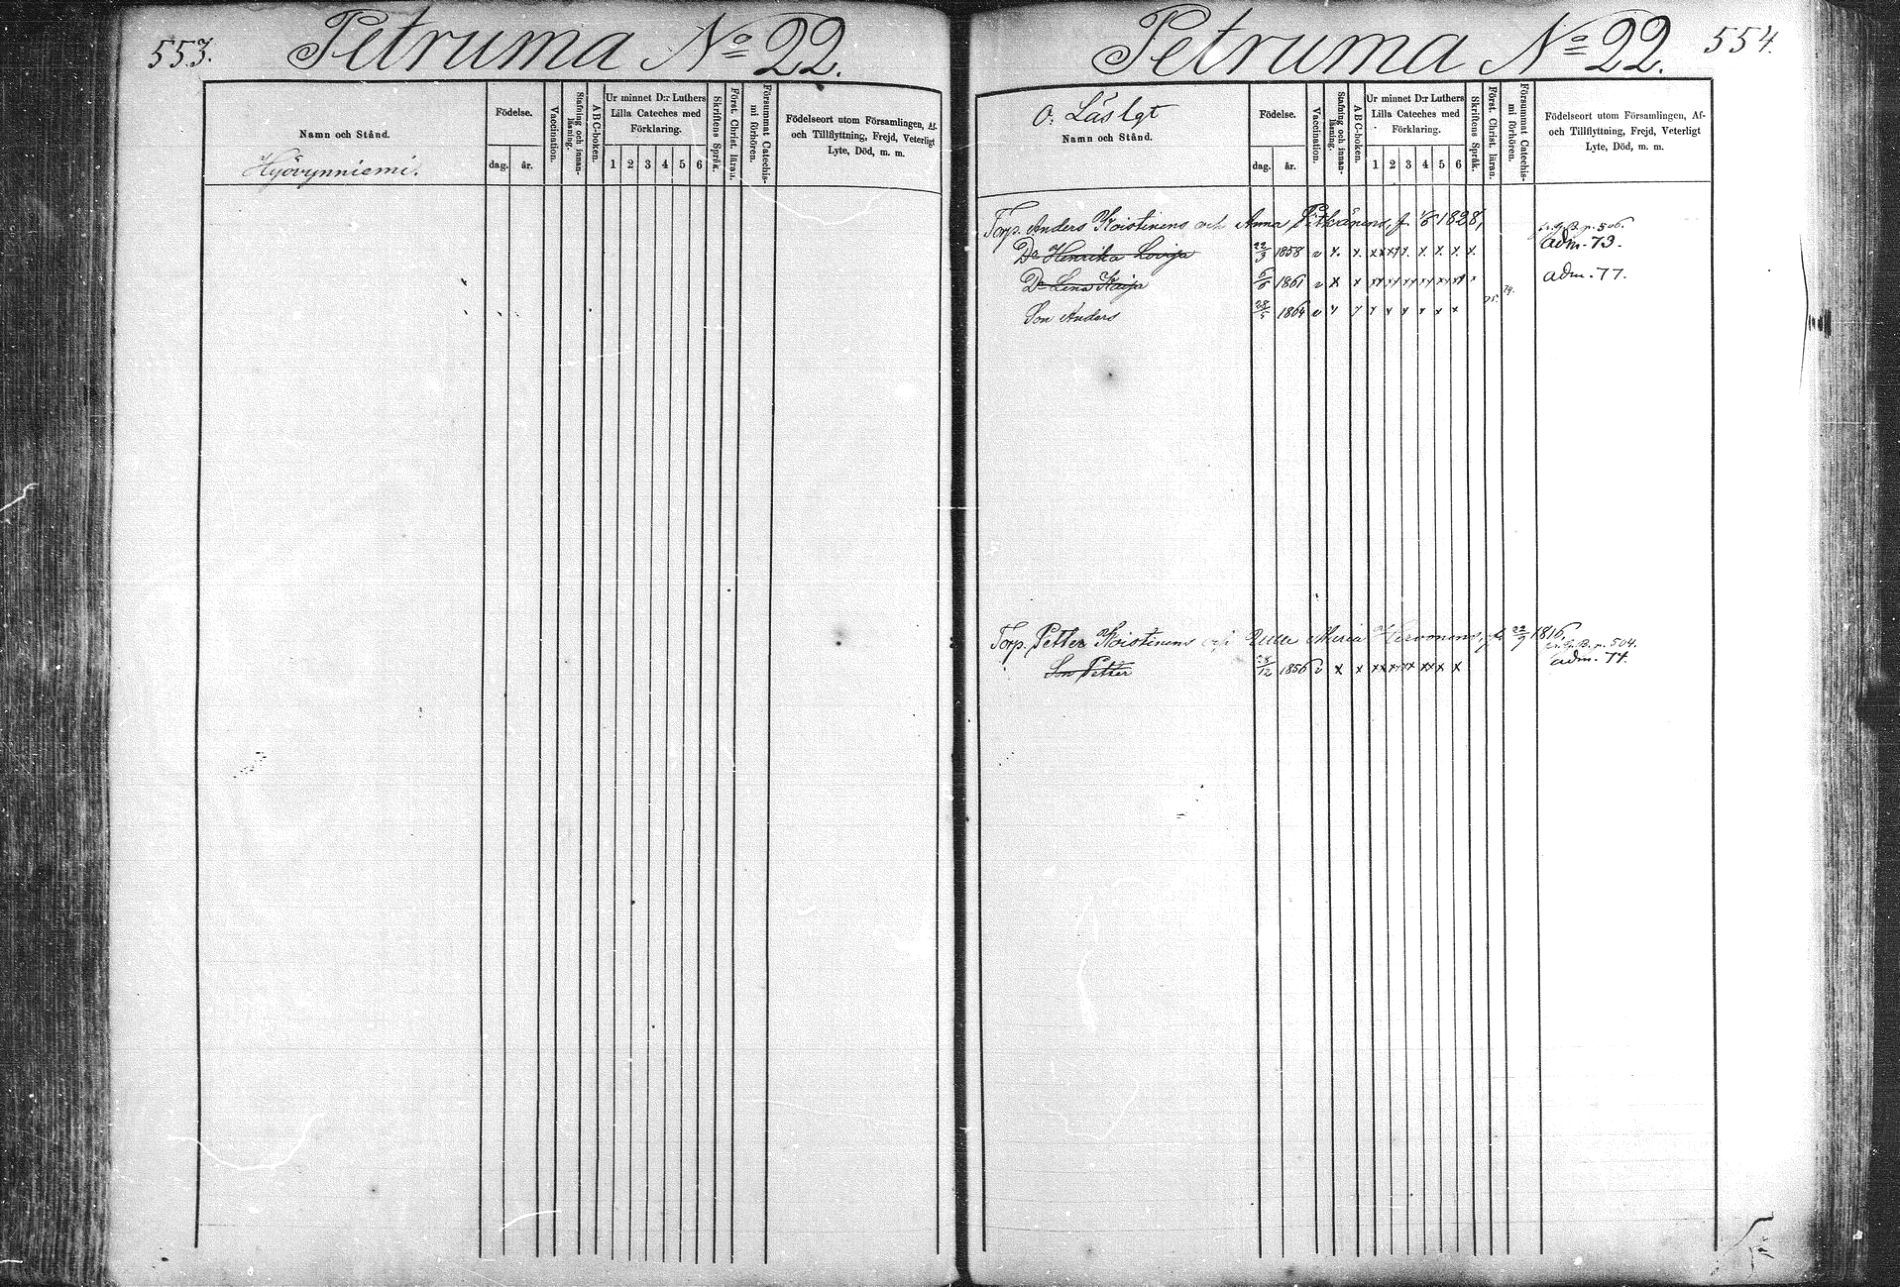 553.
Petruma No 22.
Namn och Stånd.
Hyövynniemi.
Födelse.
dag.
år.
Vaccination.
Stafning och innan-
läsning.
ABC-boken.
Ur minnet D:r Luthers
Lilla Cateches med
Förklaring.
1 2 3 4 5 6
Skriftens Språk.
Först. Christ. läran.
Försummat Catechis-
mi förhören.
Födelseort utom Församlingen, Af-
och Tillflyttning, Frejd, Veterligt
Lyte, Död, m. m.
Petruma No 22.
554.
O. Läslgt
Namn och Stånd.
Födelse.
dag.
år.
Vaccination.
Stafning och innan-
läsning.
ABC-boken.
Ur minnet D:r Luthers
Lilla Cateches med
Förklaring.
1 2 3 4 5 6
Skriftens Språk.
Först. Christ. läran.
Försummat Catechis-
mi förhören.
Födelseort utom Församlingen, Af-
och Tillflyttning, Frejd, Veterligt
Lyte, Död, m. m.
Torp. Anders Koistinens och Anna Pitkänens, f. 1828,
B. p. 506.
Dr Henrika Lovisa 22/9 1858 v x x x x x x x x x adm. 73.
Dr Lena Kaisa 1861 v x x x x x x x x adm. 77.
75. 79.
Son Anders 1864 v x x x x x x x x
Torp. Petter Koistinens Maria Hirvonens, f. 22/9 1816,
B. p. 504.
Son Petter /12 1856 v x x x x x x x x adm. 74.